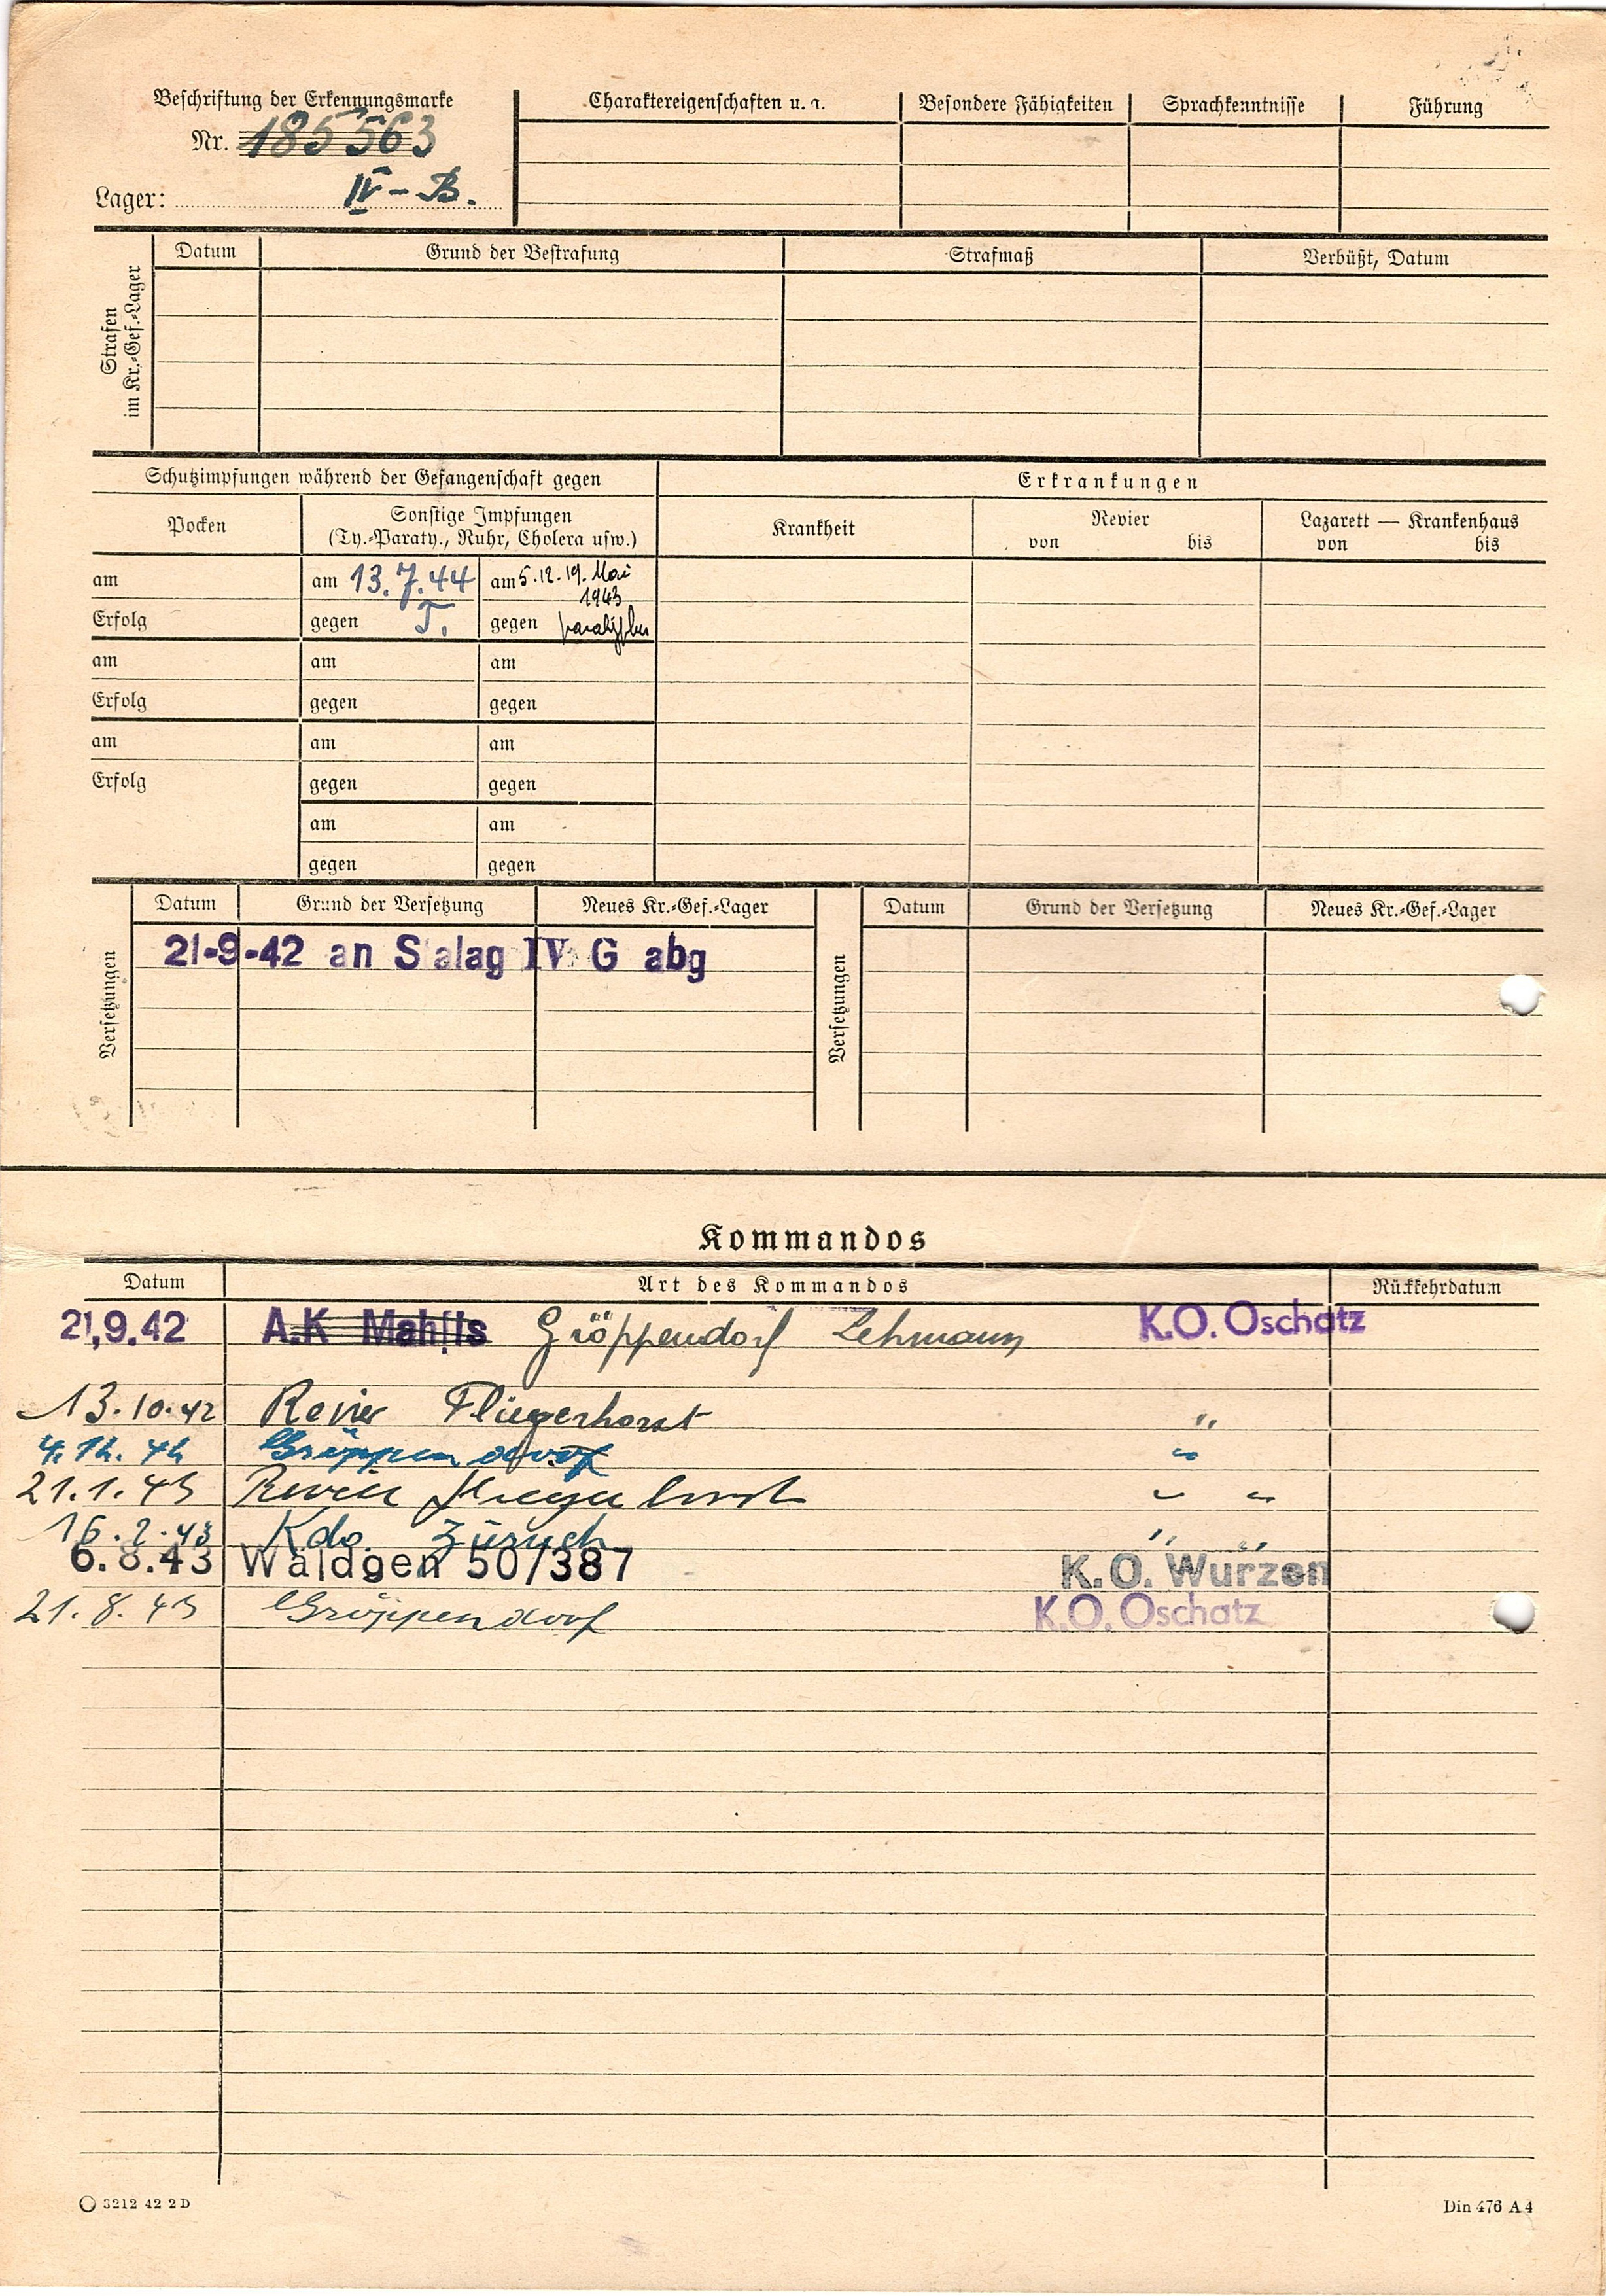 Beschriftung der Erkennungsmarke
Nr. 185563
Lager: IV-B.
Charaktereigenschaften u. a. Besondere Fähigkeiten Sprachkenntnisse Führung
Strafen im Kr.-Gef.-Lager
Datum Grund der Bestrafung Strafmaß Verbüßt, Datum
Schutzimpfungen während der Gefangenschaft gegen Erkrankungen
Pocken Sonstige Impfungen Krankheit Revier Lazarett — Krankenhaus
(Ty.-Paraty., Ruhr, Cholera usw.) von bis von bis
am am 13.7.44 am 5.12.19. Mai
1943
Erfolg gegen T. gegen
am am am
Erfolg gegen gegen
am am am
Erfolg gegen gegen
am am
gegen gegen
Versetzungen
Datum Grund der Versetzung Neues Kr.-Gef.-Lager
21-9-42 an S alag IV G abg
Versetzungen
Datum Grund der Versetzung Neues Kr.-Gef.-Lager
Kommandos
Datum Art des Kommandos Rückkehrdatum
21,9.42 A.K Mahlis Gröppendorf Lehmann K.O. Oschatz
13.10.42 Revier Fliegerhorst "
4.12.42 Gröppendorf "
21.1.43 Revier Fliegerhorst " "
16.2.43 Kdo. " "
6.8.43 Waldgen 50/387 K.O. Wurzen
21.8.43 Gröppendorf K.O. Oschatz
3212 42 2 D Din 476 A 4